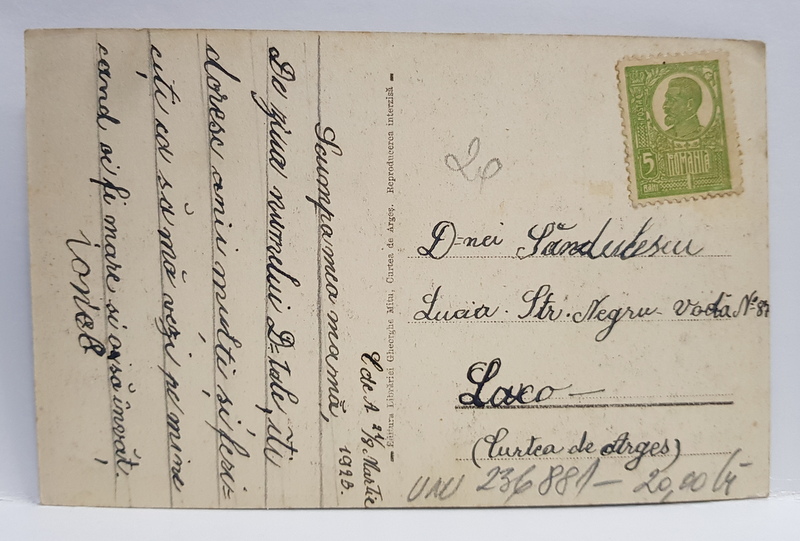 Scumpa mea mamă,
De ziua numelui D-tale, îți
doresc ani mulți și feri-
ciți ca să mă vezi pe mine
cand oi fi mare si oi să învăt.
Ionel
C de A 21/8 Martie
1923.
— Editura Librăriei Gheorghe Mitu, Curtea de Argeș. Reproducerea interzisă —
20
POSTA
5
BANI
ROMANIA
D-nei Săndulescu
Lucia. Str. Negru-Vodă Nº 87
Loco —
(Curtea de Arges)
236881 — 20,00 lei